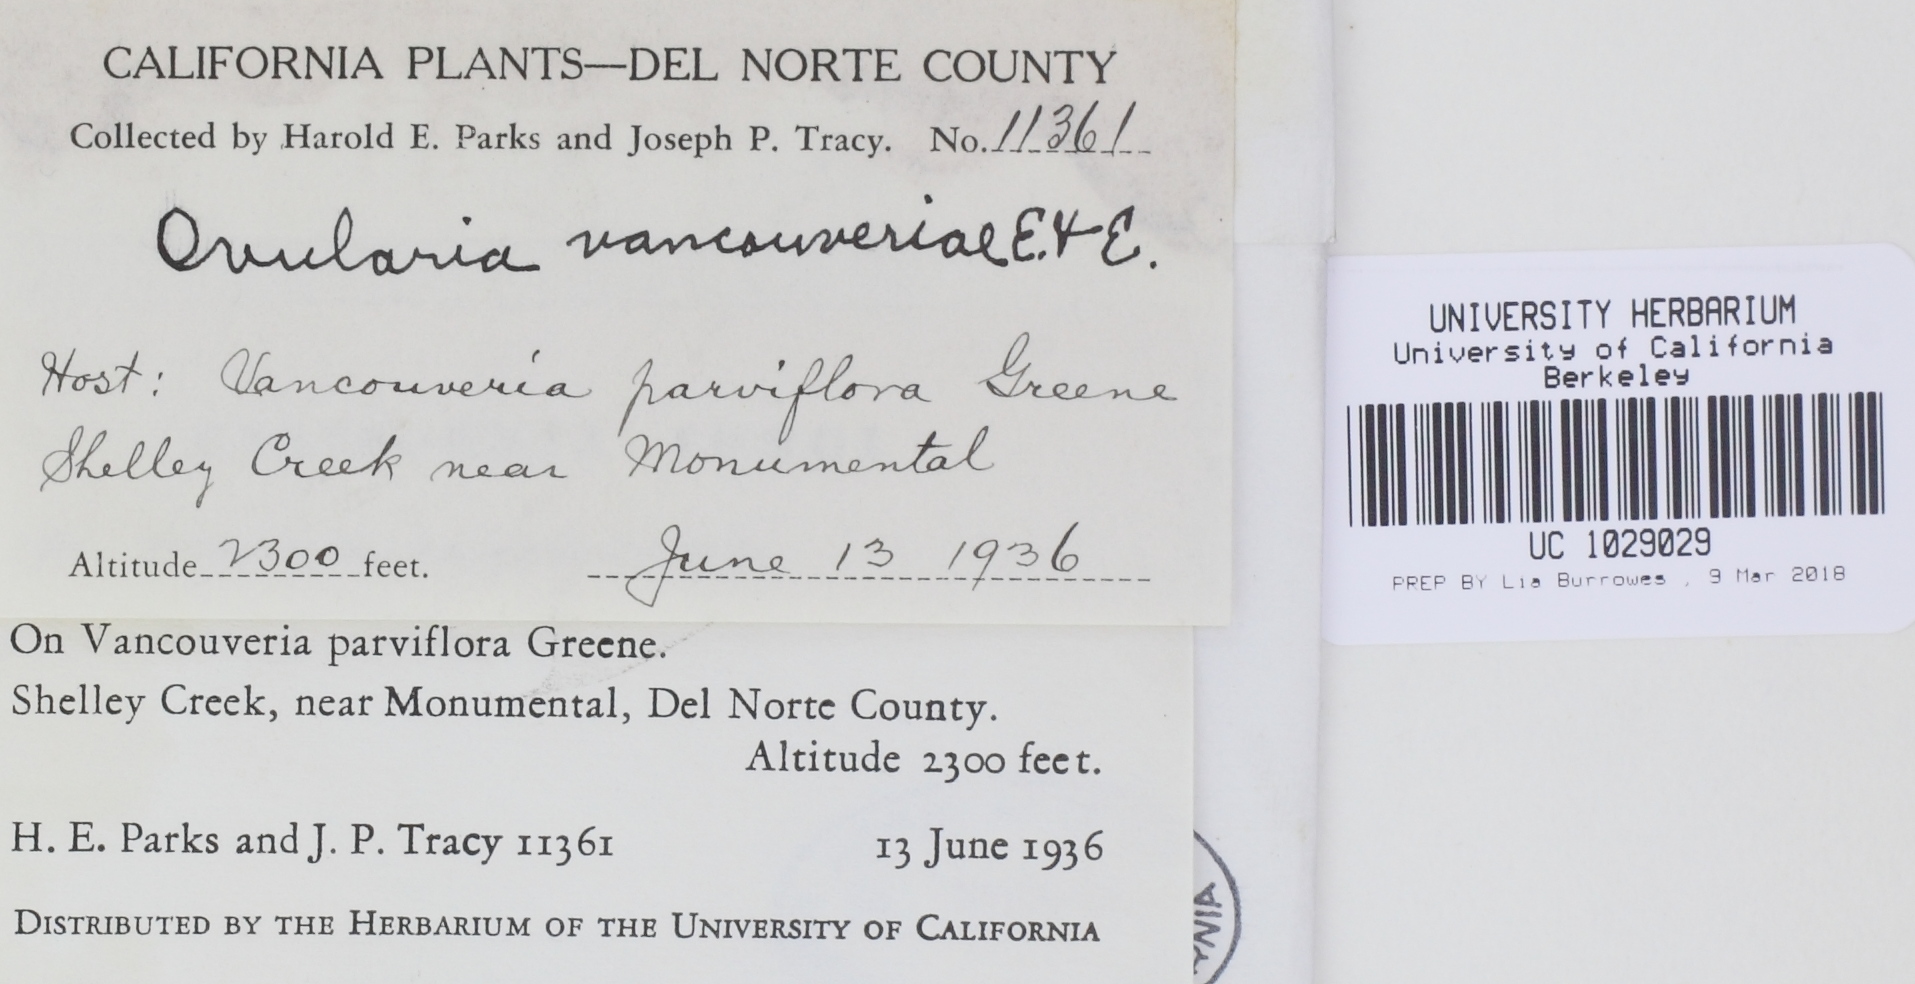 CALIFORNIA PLANTS—DEL NORTE COUNTY
Collected by Harold E. Parks and Joseph P. Tracy. No. 11361
Ovularia vancouveriae E. & E.
Host: Vancouveria parviflora Greene
Shelley Creek near Monumental
Altitude 2300 feet. June 13 1936
On Vancouveria parviflora Greene.
Shelley Creek, near Monumental, Del Norte County.
Altitude 2300 feet.
H. E. Parks and J. P. Tracy 11361 13 June 1936
DISTRIBUTED BY THE HERBARIUM OF THE UNIVERSITY OF CALIFORNIA
UNIVERSITY HERBARIUM
University of California
Berkeley
UC 1029029
PREP BY Lia Burrowes , 9 Mar 2018